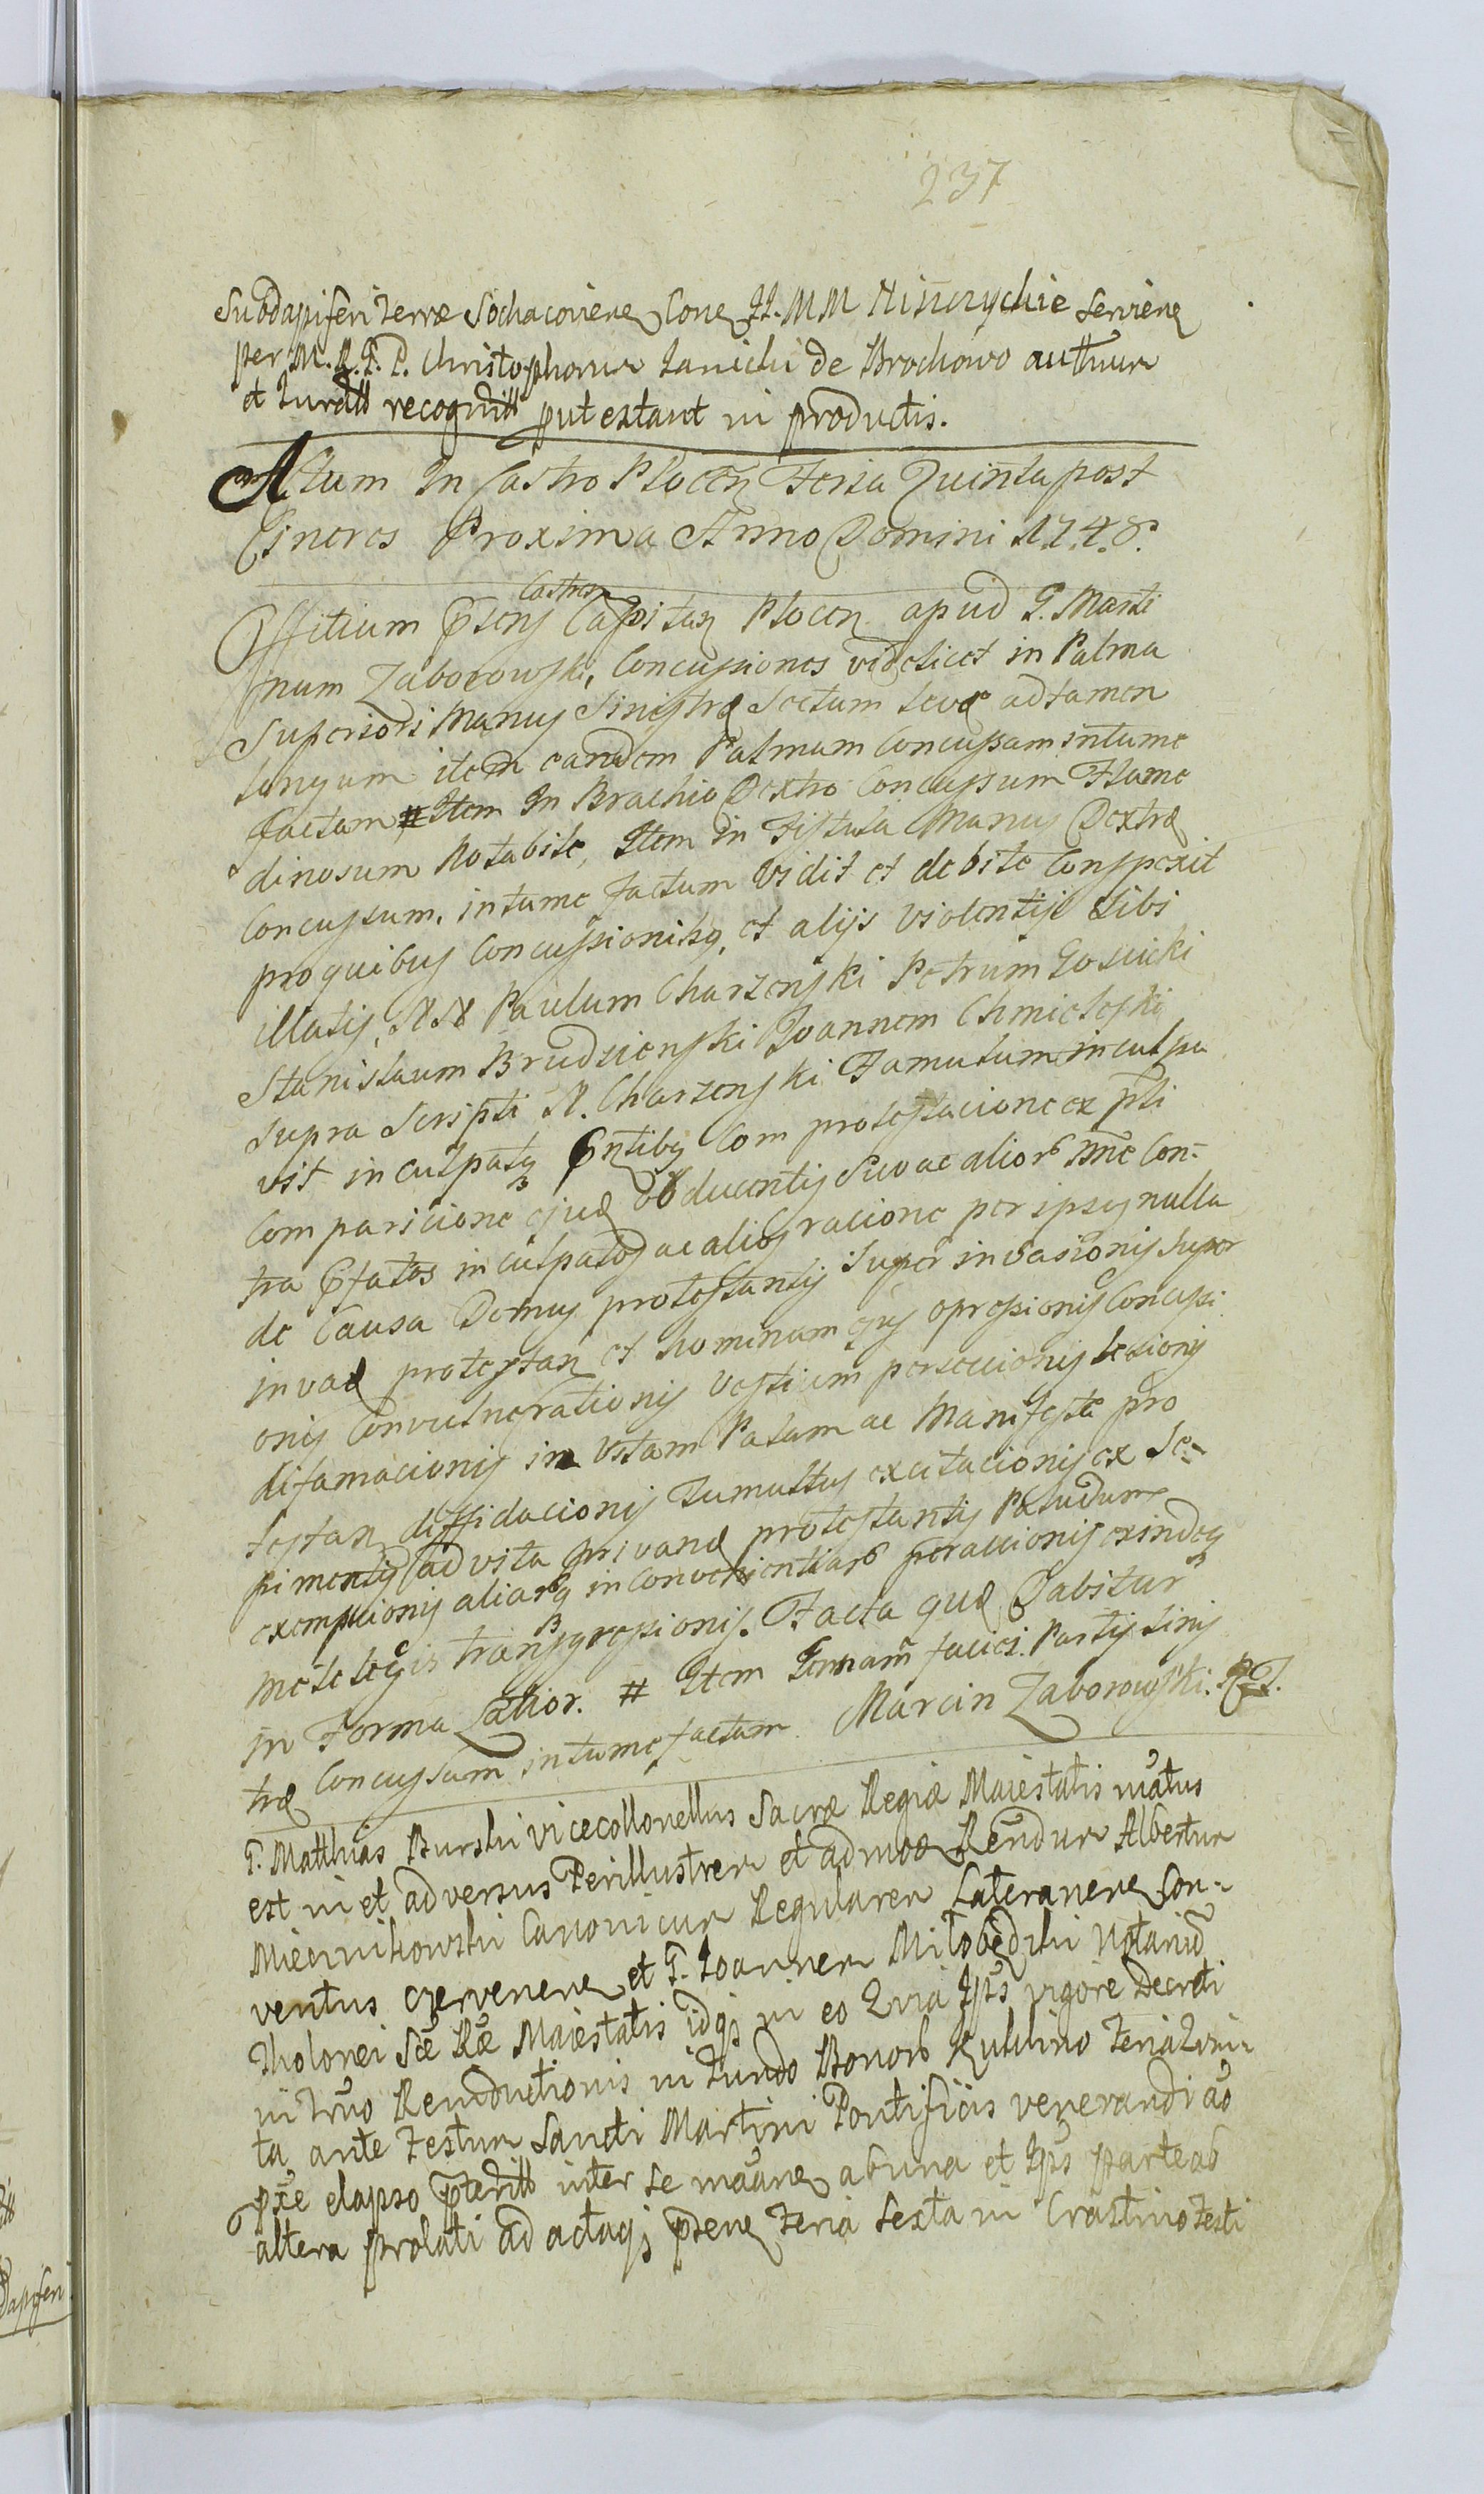 237
Subdapiferi terræ Sochacoviens Cons JJ. MM serviens
per M. R. P. P. Christophorum Janicki de Brochowo authum
et Juratt recognitt put extant in productis.
Actum In Castro Plocen Feria Quinta post
Cineres Proxima Anno Domini 1.7.4.8.
Castren
Offitium Pns Capitan Plocen apud G. Marti
num Zaborowski, Concussiones videlicet in Palma
Superiori Manus Sinistræ Sectum leve adtamen
longum item eandem Palmam Concussam intume
factam # Item In Brachio Dextro Concussum Flame
dinosum Notabile, Item in Fistula Manus Dextræ
Concussum, intume factum Vidit et debite Conspexit
pro quibus Concussionibq, et alijs Violentijs Sibi
illatis, NN Paulum Charzenski Petrum Gosicki
Stanislaum Brudzienski Joannem Chmieleski
Supra Scripti N. Charzenski Famulum inculpa
vit inculpatq Pntibq Com protestacione ex pti
Comparicione ejusd obducentis Suo ac alior nne Con-
tra Pfatos inculpatos ac alios racione per ipsos nulla
de Causa Domus protestantis Super invasionis Super
invad protestan et hominum ejus opressionis Concussi
onis Convulnerationis Vestium perseccionis lesionis
difamacionis in Vitam Palam ac Manifeste pro
testan diffidacionis Tumultus excitacionis ex Se-
pimentis ad vita privand protestantis Paludum
exempcionis aliarq inconvenientiar peraccionis exindeq
mete legis transgressionis. Facta quæ Dabitur
in Forma Lator. # Item Gennam faciei Partis Sinis
træ Concussam intumefactam Marcin Zaborowski.
G. Matthias Burski vicecollonellus Sacræ Regiæ Maiestatis mątus
est in et adversus Perillustrem et admod Rendum Albertum
Miecznikowski Canonicum Regularem Lateranens Con-
ventus czervenens et G. Joannem Miłobędzki Notarium
Tholonei Sæ Ræ Maiestatis idq in eo Quia Ips vigore Decreti
in Trno Reinductionis in Fundo Bonor Kuchino Feria Quin-
ta ante Festum Sancti Martini Pontificis venerandi ao
pxe elapso ptertt inter se ab una et Ips parte ab
altera prolati ad actaq psens Feria Sexta in Crastino Festi